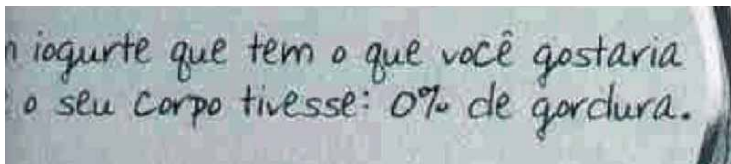 iogurte que tem o que você gostaria
o seu corpo tivesse: 0% de gordura.